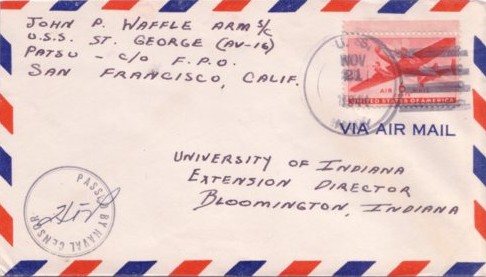 JOHN P. WAFFLE ARM S/C
U.S.S. ST. GEORGE (AV-16)
PATSU - C/O F.P.O.
SAN FRANCISCO, CALIF.
U.S.
NOV
21
NAVY
AIR
UNITED STATES OF AMERICA
VIA AIR MAIL
UNIVERSITY OF INDIANA
EXTENSION DIRECTOR
BLOOMINGTON, INDIANA
PASSED BY NAVAL CENSOR